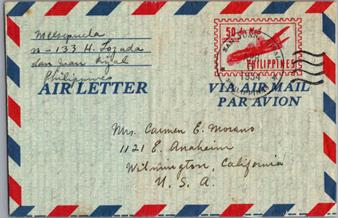 M-133 H. Lozada
San Juan Rizal
Philippines
50 Air Mail
PHILIPPINES
1954
AIR LETTER
VIA AIR MAIL
PAR AVION
Mrs. Carmen E. Morano
1121 E. Anaheim
Wilmington, California
U. S. A.